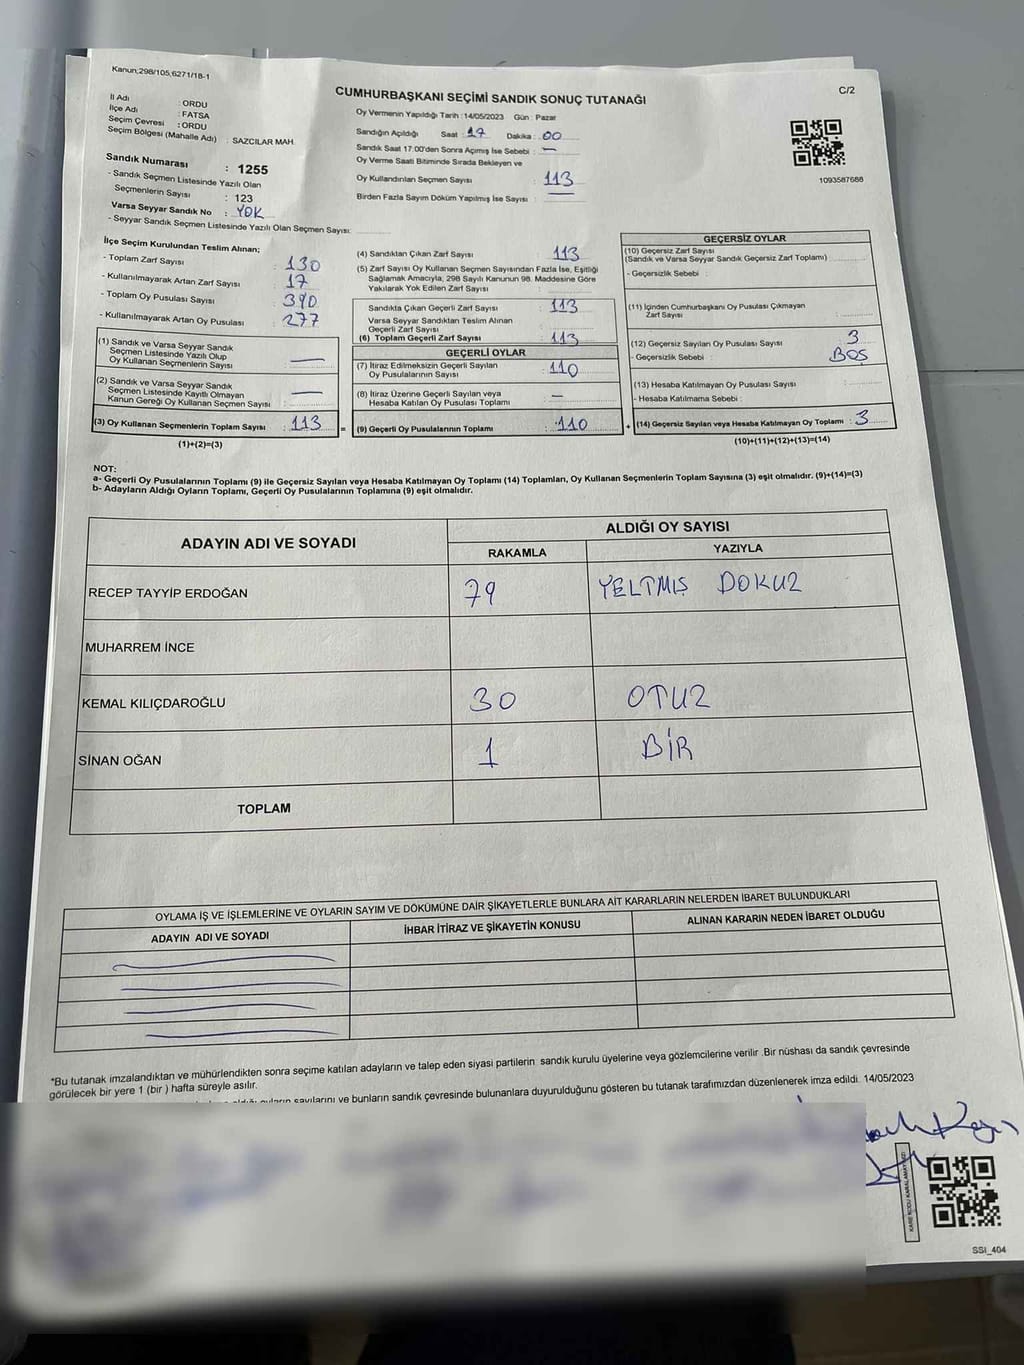 Kanun;298/105,6271/18-1
CUMHURBAŞKANI SEÇİMİ SANDIK SONUÇ TUTANAĞI
C/2
İl Adı : ORDU
İlçe Adı : FATSA
Seçim Çevresi : ORDU
Seçim Bölgesi (Mahalle Adı) : SAZCILAR MAH.
Sandık Numarası : 1255
- Sandık Seçmen Listesinde Yazılı Olan
Seçmenlerin Sayısı : 123
Varsa Seyyar Sandık No : YOK
- Seyyar Sandık Seçmen Listesinde Yazılı Olan Seçmen Sayısı:
Oy Vermenin Yapıldığı Tarih : 14/05/2023 Gün : Pazar
Sandığın Açıldığı Saat : 17 Dakika : 00
Sandık Saat 17:00'den Sonra Açımış İse Sebebi : —
Oy Verme Saati Bitiminde Sırada Bekleyen ve
Oy Kullandırılan Seçmen Sayısı : 113
Birden Fazla Sayım Döküm Yapılmış İse Sayısı : —
1093587686
İlçe Seçim Kurulundan Teslim Alınan;
- Toplam Zarf Sayısı : 130
- Kullanılmayarak Artan Zarf Sayısı : 17
- Toplam Oy Pusulası Sayısı : 390
- Kullanılmayarak Artan Oy Pusulası : 277
(1) Sandık ve Varsa Seyyar Sandık
Seçmen Listesinde Yazılı Olup
Oy Kullanan Seçmenlerin Sayısı : —
(2) Sandık ve Varsa Seyyar Sandık
Seçmen Listesinde Kayıtlı Olmayan
Kanun Gereği Oy Kullanan Seçmen Sayısı : —
(3) Oy Kullanan Seçmenlerin Toplam Sayısı : 113
(1)+(2)=(3)
(4) Sandıktan Çıkan Zarf Sayısı : 113
(5) Zarf Sayısı Oy Kullanan Seçmen Sayısından Fazla İse, Eşitliği
Sağlamak Amacıyla, 298 Sayılı Kanunun 98. Maddesine Göre
Yakılarak Yok Edilen Zarf Sayısı :
Sandıkta Çıkan Geçerli Zarf Sayısı : 113
Varsa Seyyar Sandıktan Teslim Alınan
Geçerli Zarf Sayısı :
(6) Toplam Geçerli Zarf Sayısı : 113
GEÇERLİ OYLAR
(7) İtiraz Edilmeksizin Geçerli Sayılan
Oy Pusulalarının Sayısı : 110
(8) İtiraz Üzerine Geçerli Sayılan veya
Hesaba Katılan Oy Pusulası Toplamı : —
= (9) Geçerli Oy Pusulalarının Toplamı : 110
GEÇERSİZ OYLAR
(10) Geçersiz Zarf Sayısı
(Sandık ve Varsa Seyyar Sandık Geçersiz Zarf Toplamı) :
- Geçersizlik Sebebi :
(11) İçinden Cumhurbaşkanı Oy Pusulası Çıkmayan
Zarf Sayısı :
(12) Geçersiz Sayılan Oy Pusulası Sayısı : 3
- Geçersizlik Sebebi : BOŞ
(13) Hesaba Katılmayan Oy Pusulası Sayısı :
- Hesaba Katılmama Sebebi :
+ (14) Geçersiz Sayılan veya Hesaba Katılmayan Oy Toplamı : 3
(10)+(11)+(12)+(13)=(14)
NOT:
a- Geçerli Oy Pusulalarının Toplamı (9) ile Geçersiz Sayılan veya Hesaba Katılmayan Oy Toplamı (14) Toplamları, Oy Kullanan Seçmenlerin Toplam Sayısına (3) eşit olmalıdır. (9)+(14)=(3)
b- Adayların Aldığı Oyların Toplamı, Geçerli Oy Pusulalarının Toplamına (9) eşit olmalıdır.
ADAYIN ADI VE SOYADI ALDIĞI OY SAYISI
RAKAMLA YAZIYLA
RECEP TAYYİP ERDOĞAN 79 YELTMIŞ DOKUZ
MUHARREM İNCE
KEMAL KILIÇDAROĞLU 30 OTUZ
SİNAN OĞAN 1 BİR
TOPLAM
OYLAMA İŞ VE İŞLEMLERİNE VE OYLARIN SAYIM VE DÖKÜMÜNE DAİR ŞİKAYETLERLE BUNLARA AİT KARARLARIN NELERDEN İBARET BULUNDUKLARI
ADAYIN ADI VE SOYADI İHBAR İTİRAZ VE ŞİKAYETİN KONUSU ALINAN KARARIN NEDEN İBARET OLDUĞU
*Bu tutanak imzalandıktan ve mühürlendikten sonra seçime katılan adayların ve talep eden siyasi partilerin sandık kurulu üyelerine veya gözlemcilerine verilir .Bir nüshası da sandık çevresinde
görülecek bir yere 1 (bir ) hafta süreyle asılır.
oyların sayılarını ve bunların sandık çevresinde bulunanlara duyurulduğunu gösteren bu tutanak tarafımızdan düzenlenerek imza edildi. 14/05/2023
KARE KODU KARALAMAYINIZ!
SSI_404